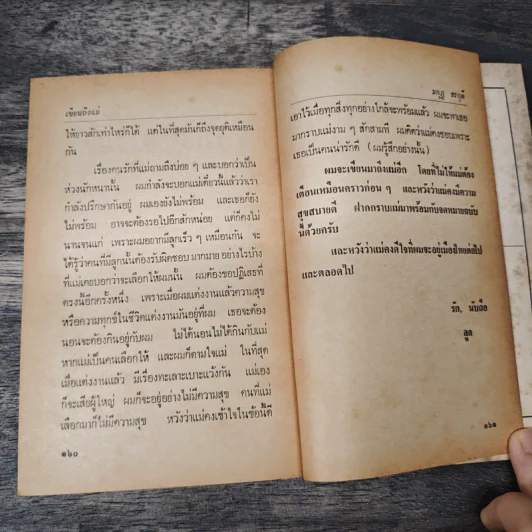 เขียนถึงแม่
ให้ยาวสักเท่าไหร่ก็ได้ แต่ในที่สุดมันก็ถึงจุดยุติเหมือน
กัน
เรื่องคนรักที่แม่ถามถึงบ่อย ๆ และบอกว่าเป็น
ห่วงนักหนานั้น ผมกำลังจะบอกแม่เดี๋ยวนี้แล้วว่าเรา
กำลังปรึกษากันอยู่ ผมเองยังไม่พร้อม และเธอก็ยัง
ไม่พร้อม อาจจะต้องรอไปอีกสักหน่อย แต่ก็คงไม่
นานจนแก่ เพราะผมอยากมีลูกเร็ว ๆ เหมือนกัน จะ
ได้รู้ว่าคนที่มีลูกนั้นต้องรับผิดชอบ มากมาย อย่างไรบ้าง
ที่แม่เคยบอกว่าจะเลือกให้ผมนั้น ผมต้องขอปฏิเสธที่
ตรงนี้อีกครั้งหนึ่ง เพราะเมื่อผมแต่งงานแล้วความสุข
หรือความทุกข์ในชีวิตแต่งงานมันอยู่ที่ผม เธอจะต้อง
นอนจะต้องกินอยู่กับผม ไม่ได้นอนไม่ได้กินกับแม่
หากแม่เป็นคนเลือกให้ และผมก็ตามใจแม่ ในที่สุด
เมื่อแต่งงานแล้ว มีเรื่องทะเลาะเบาะแว้งกัน แม่เอง
ก็จะเสียผู้ใหญ่ ผมก็จะอยู่อย่างไม่มีความสุข คนที่แม่
เลือกมาก็ไม่มีความสุข หวังว่าแม่คงเข้าใจในข้อนี้ดี
๑๖๐
เอาไว้เมื่อทุกสิ่งทุกอย่างใกล้จะพร้อมแล้ว ผมจะพาเธอ
มากราบแม่งาม ๆ สักสามที ผมคิดว่าแม่คงชอบเพราะ
เธอเป็นคนน่ารักดี (ผมรู้สึกอย่างนั้น)
ผมจะเขียนมาถึงแม่อีก โดยที่ไม่ให้แม่ต้อง
เตือนเหมือนคราวก่อน ๆ และหวังว่าแม่คงมีความ
สุขสบายดี ฝากกราบแม่มาพร้อมกับจดหมายฉบับ
นี้ด้วยครับ
และหวังว่าแม่คงดีใจที่ผมจะอยู่เมืองไทยต่อไป
และตลอดไป
รัก, นับถือ
ลูก
๑๖๑